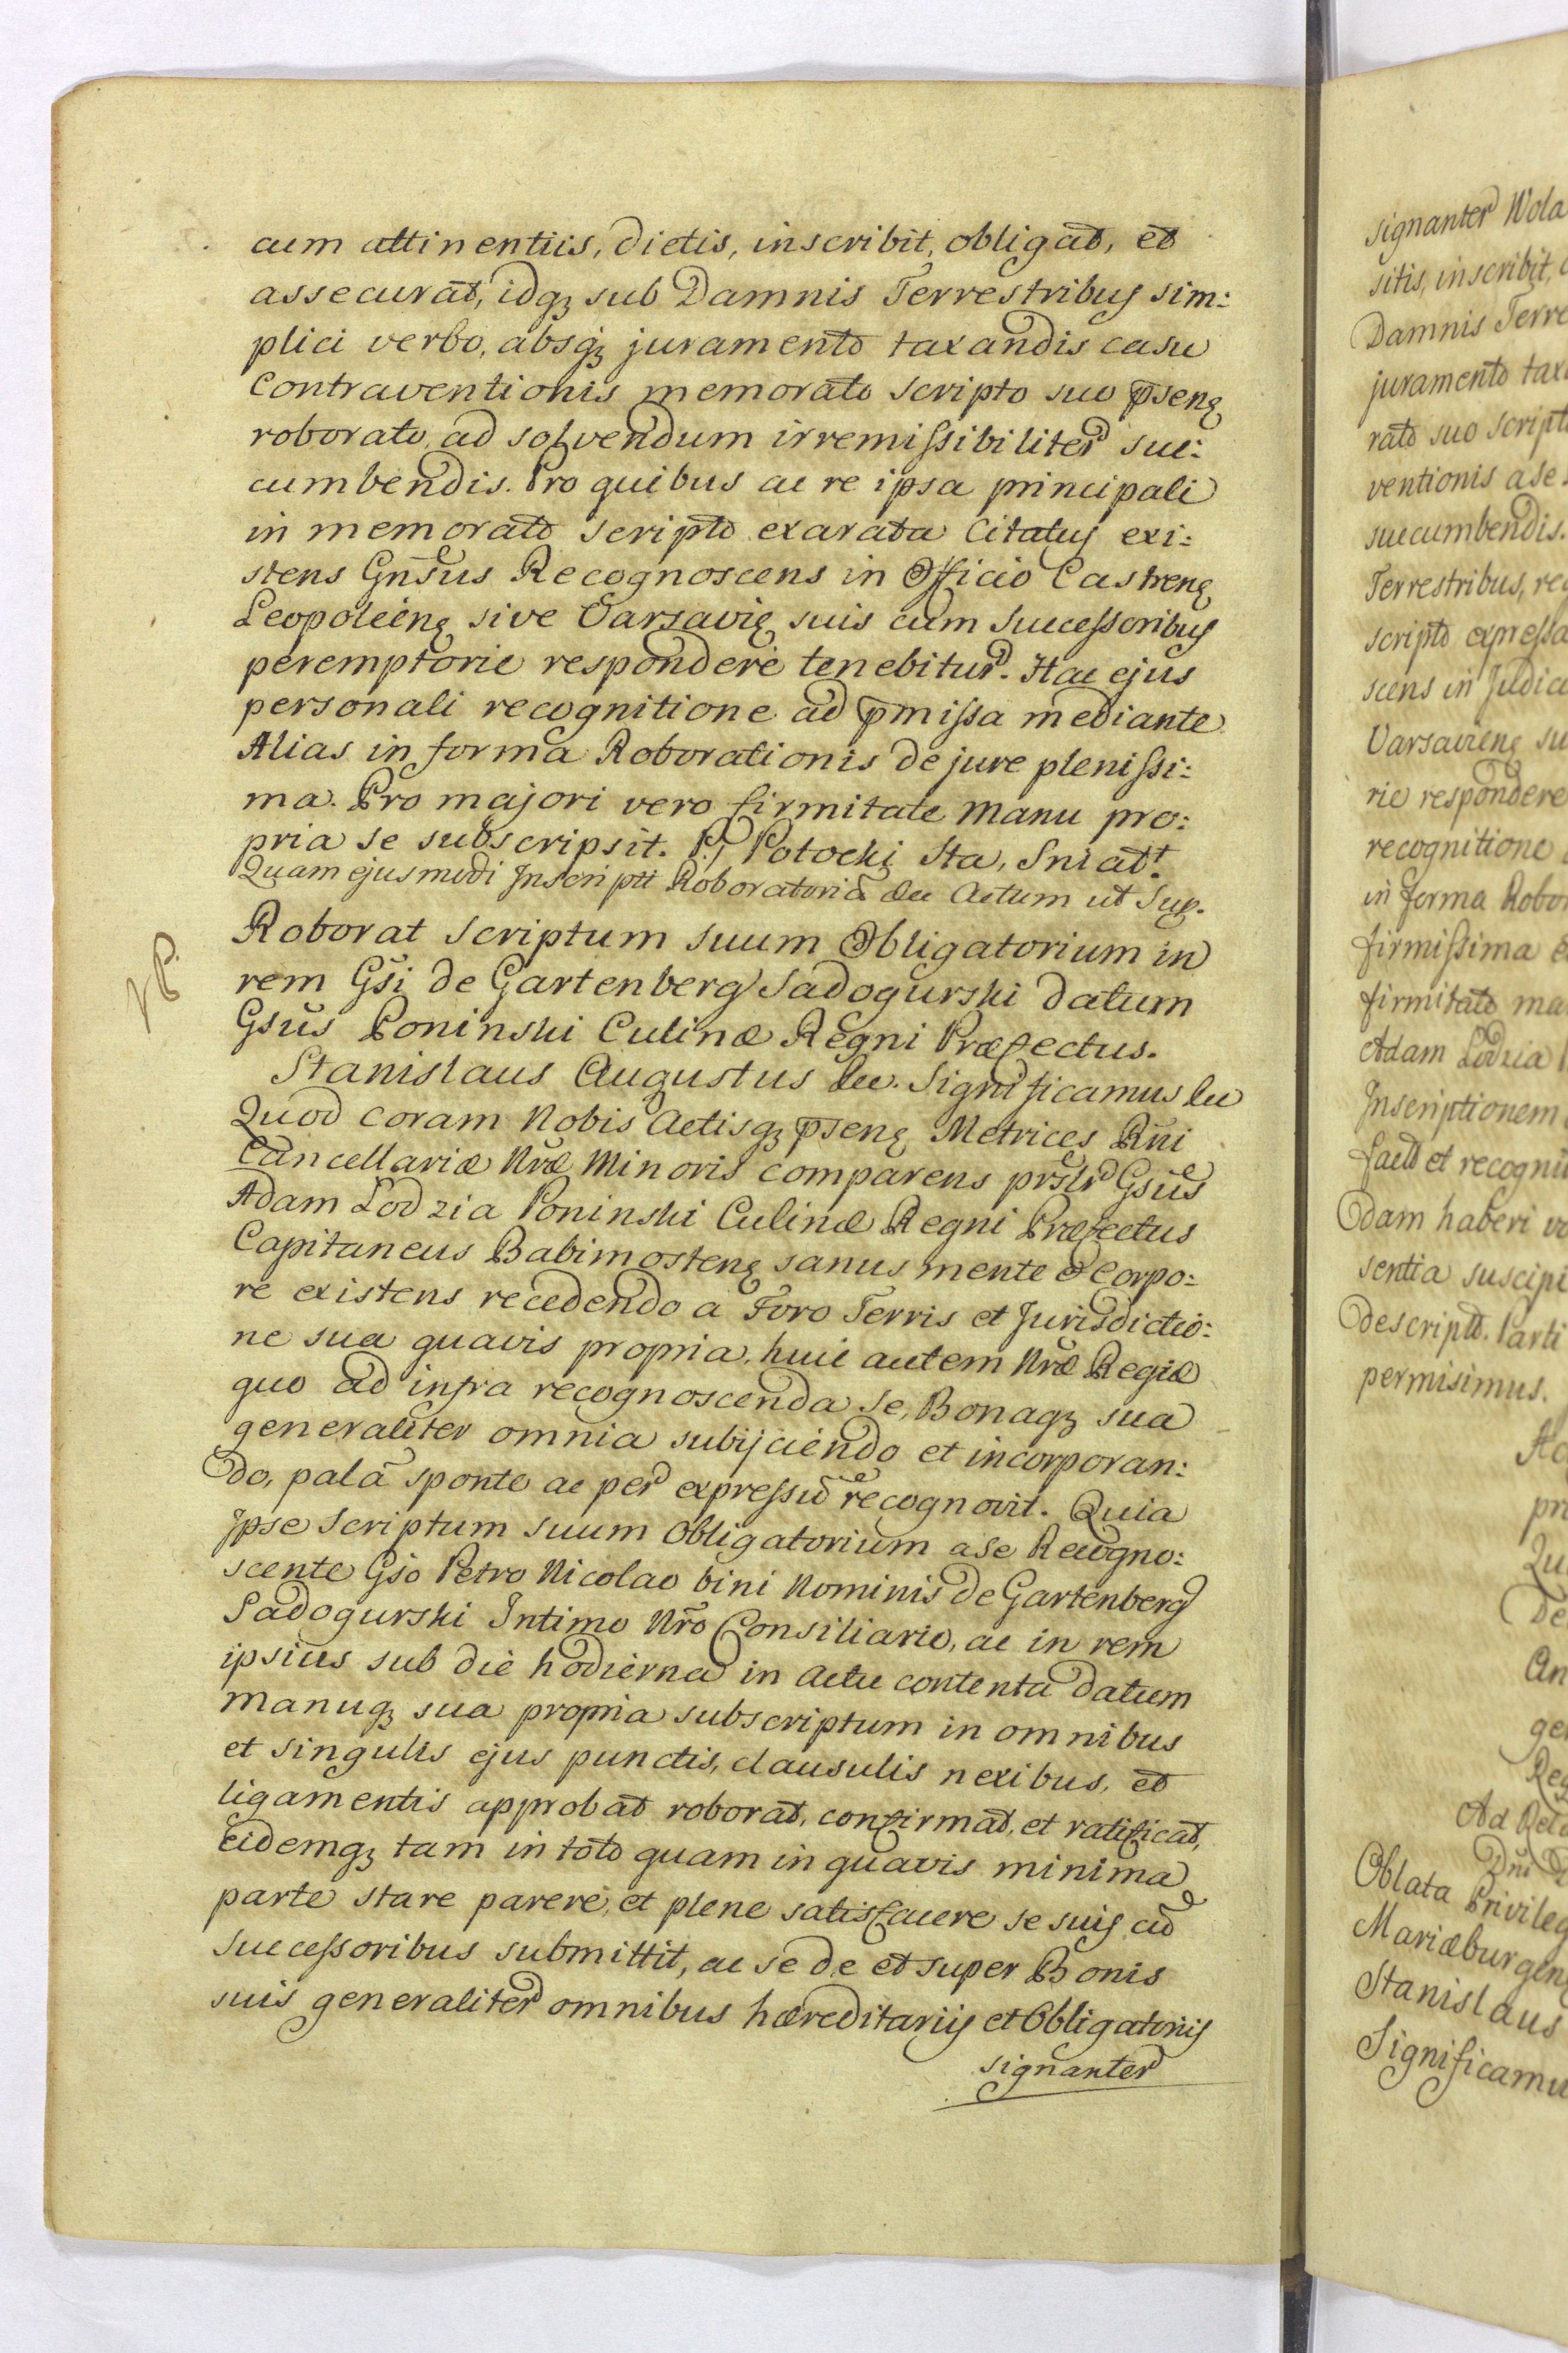 cum attinentiis, dictis, inscribit, obligat, et
assecurat, idq3 sub Damnis Terrestribus sim:
plici verbo, absq3 juramento taxandis casu
Contraventionis memorato scripto suo p̄senę
roborato, ad solvendum irremissibiliter suc:
cumbendis. Pro quibus ac re ipsa principali
in memorato scripto exarata Citatus exi:
stens Gn̄sus Recognoscens in Officio Castrenę
Leopolienę sive Varsavię suis cum Successoribus
peremptorie respondere tenebitur. Hac ejus
personali recognitione ad p̄missa mediante
Alias in forma Roborationis de jure plenissi:
ma. Pro majori vero firmitate manu pro:
pria se subscripsit. Potocki Sta, Sniatt.
Quam ejusmodi Inscripti Roboratoriā &c Actum ut Sup.
NP.
Roborat Scriptum suum Obligatorium in
rem Gsi de Gartenberg Sadogurski datum
Gsus Poninski Culinæ Regni Præfectus.
Stanislaus Augustus &c. Significamus &c
Quod coram Nobis Actisq3 p̄senę Metrices Rn̄i
Cancellariæ Nr̄æ Minoris comparens prslr Gsus
Adam Lodzia Poninski Culinæ Regni Præfectus
Capitaneus Babimostenę sanus mente et Corpo:
re existens recedendo a Foro Terris et Jurisdictio:
ne sua quavis propria, huic autem Nr̄æ Regiæ
quo ad infra recognoscenda se, Bonaq3 sua
generaliter omnia subijciendo et incorporan:
do, palā sponte ac per expressū recognovit. Quia
Ipse Scriptum suum Obligatorium a se Recogno:
scente Gso Petro Nicolao bini Nominis de Gartenberg
Sadogurski Intimo Nr̄o Consiliario, ac in rem
ipsius sub die hodierna in Actu contenta datum
manuq3 sua propria subscriptum in omnibus
et singulis ejus punctis, clausulis nexibus, et
ligamentis approbat roborat, confirmat, et ratificat,
eidemq3 tam in toto quam in quavis minima
parte stare parere, et plene satisfacere se suis cū
Successoribus submittit, ac se de et super Bonis
suis generaliter omnibus hæreditariis et Obligatoriis
signanter
signanter Wola
sitis, inscribit,
Damnis Terre
juramento taxa
rato suo scripto
ventionis a se
succumbendis.
Terrestribus, re
scripto expressa
scens in Judic
Varsavienę su
rie respondere
recognitione
in forma Robor
firmissima
firmitate ma
Adam Lodzia
Inscriptionem
facit et recogni
dam haberi vo
sentia suscipi
descripto. Parti
permisimus.
pr
Qu
De
An
ge
Reg
Ad Rela
Dn̄i
Oblata Privileg
Mariæburgen
Stanislaus
Significamu